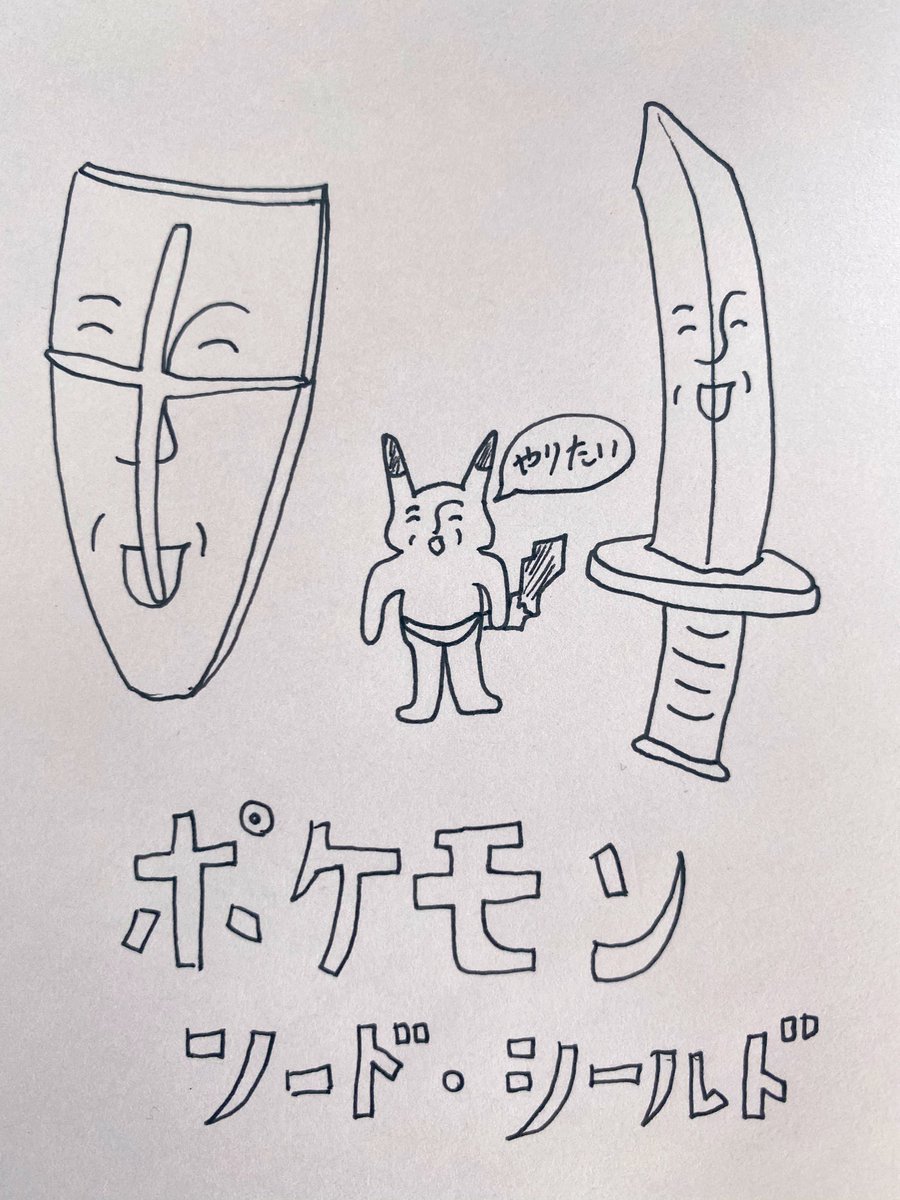 やりたい
ポケモン
ソード・シールド